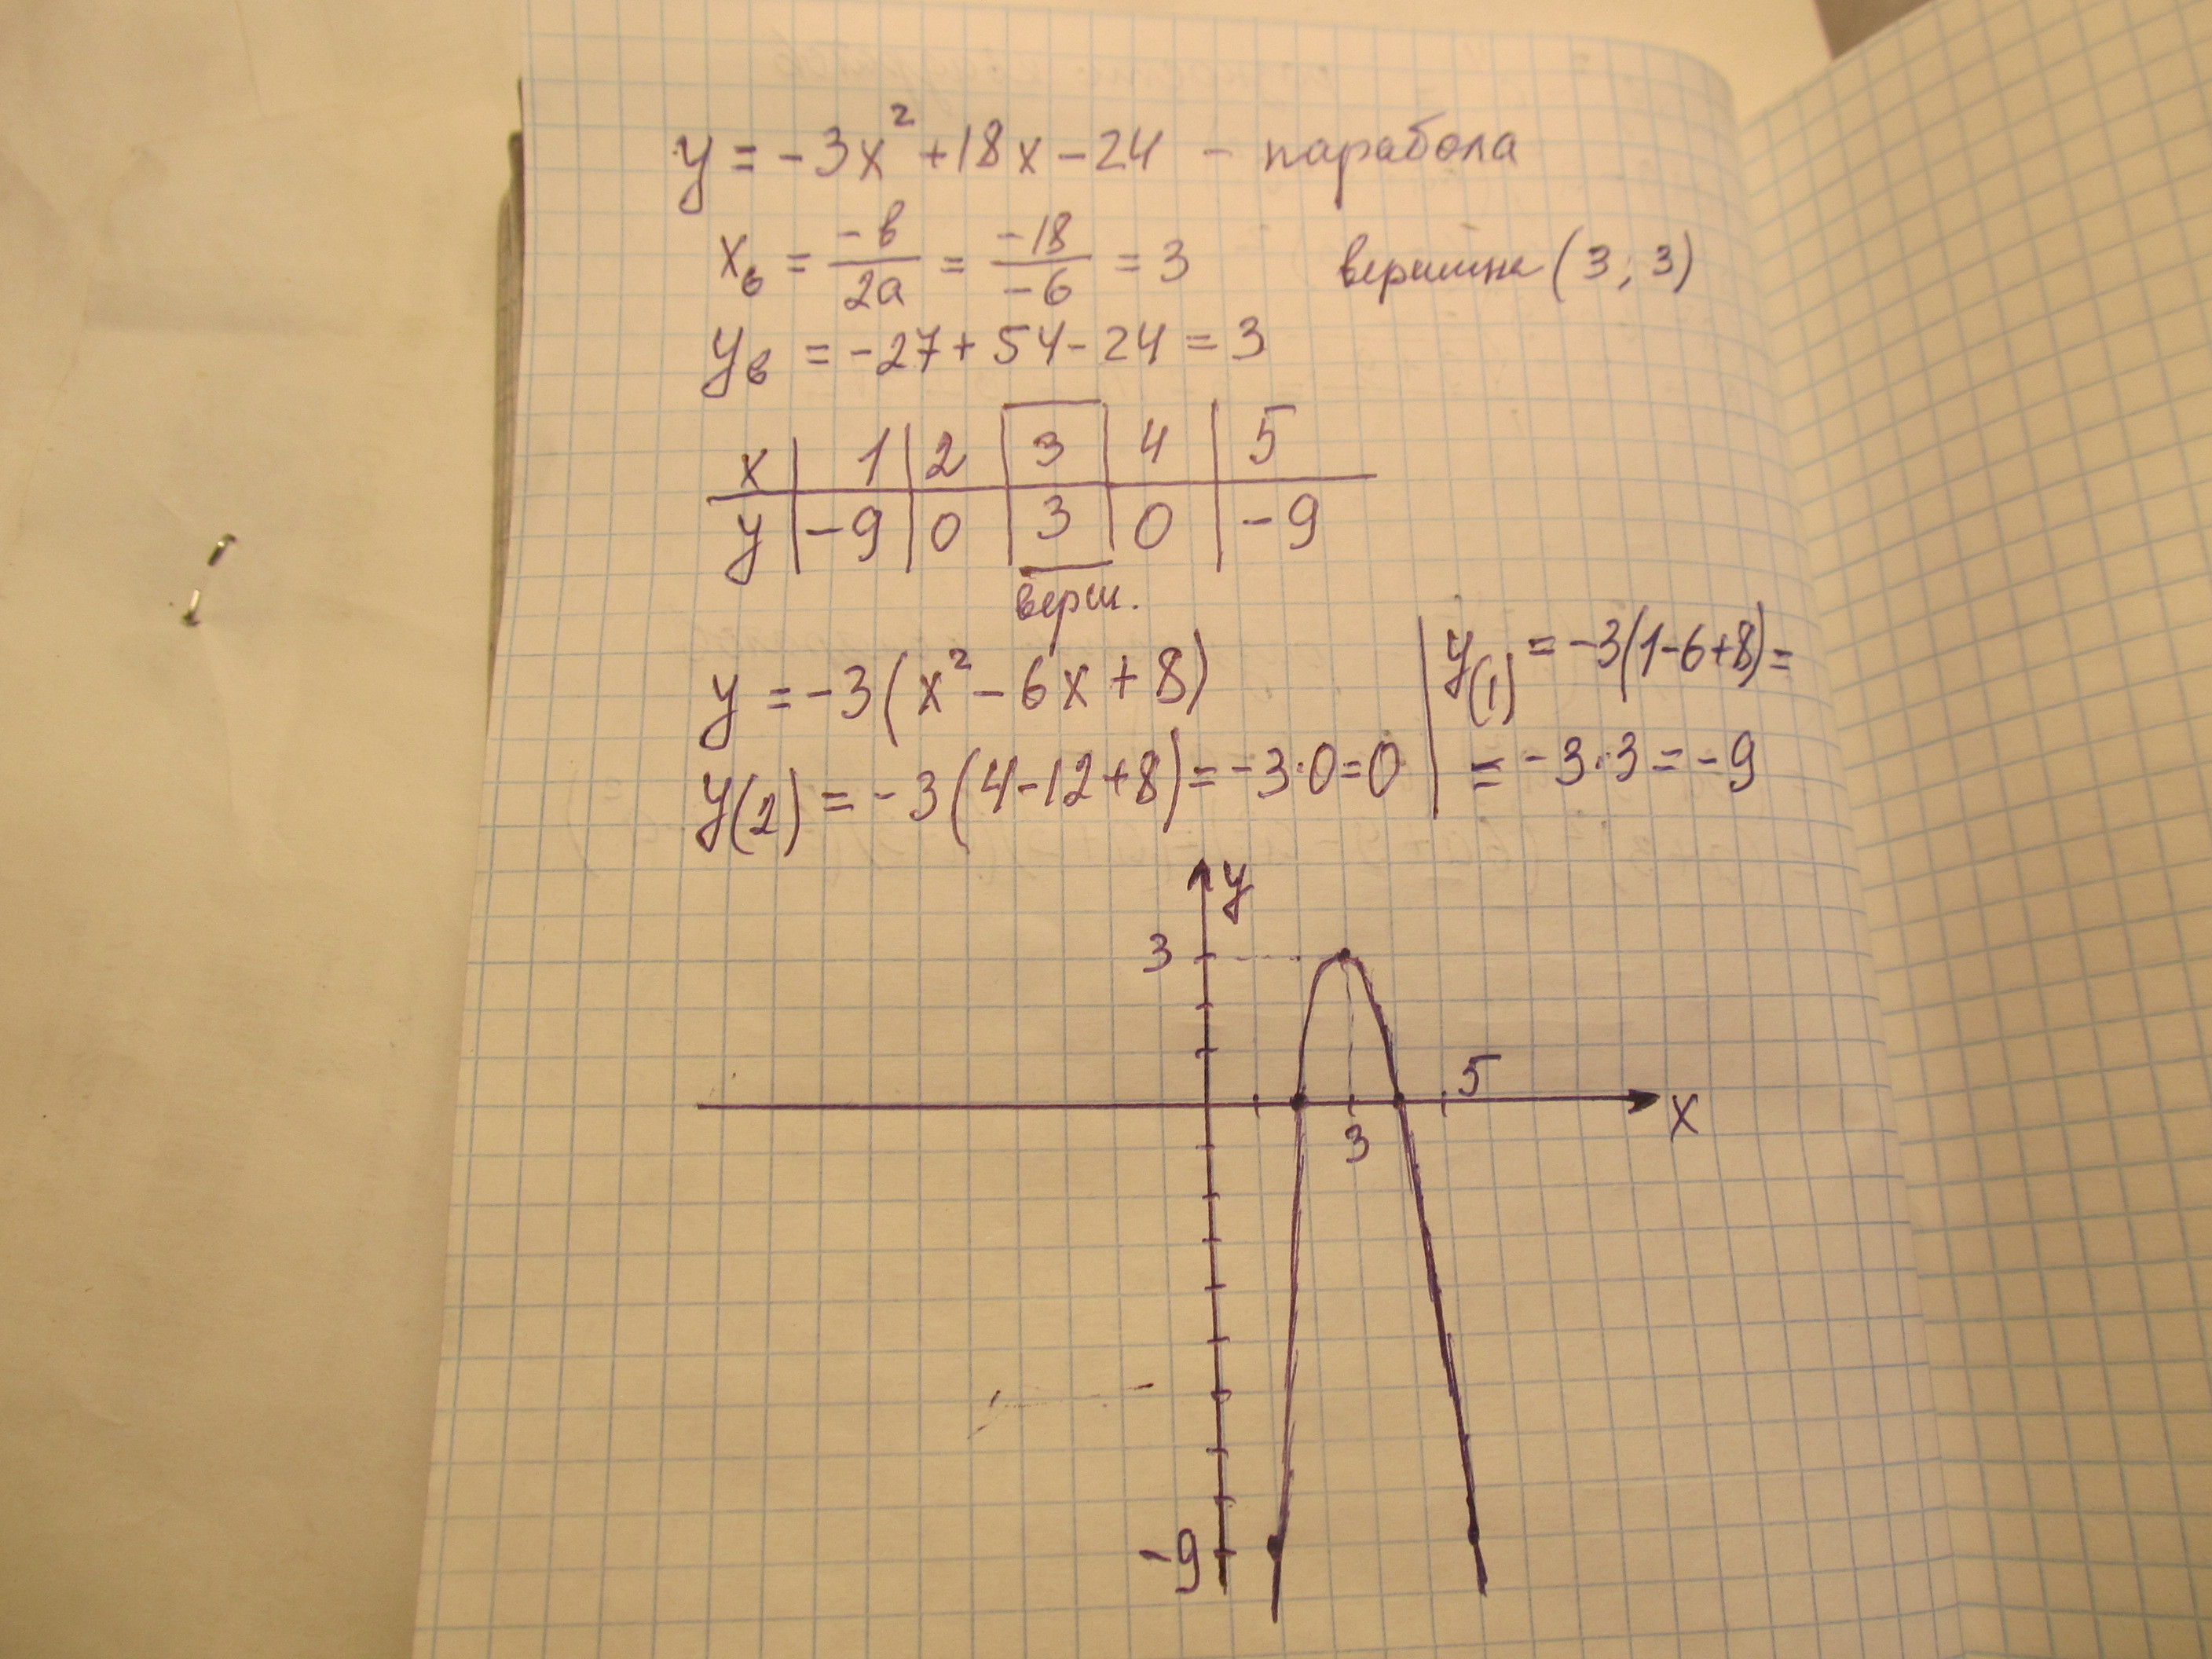 y = -3x² + 18x - 24 - парабола
xв = -в/2a = -18/-6 = 3 вершина (3; 3)
yв = -27 + 54 - 24 = 3
x | 1 | 2 | 3 | 4 | 5
y | -9 | 0 | 3 | 0 | -9
верш.
y = -3(x² - 6x + 8)
y(2) = -3(4 - 12 + 8) = -3·0 = 0
y(1) = -3(1 - 6 + 8) =
= -3·3 = -9
y
3
5
x
3
-9